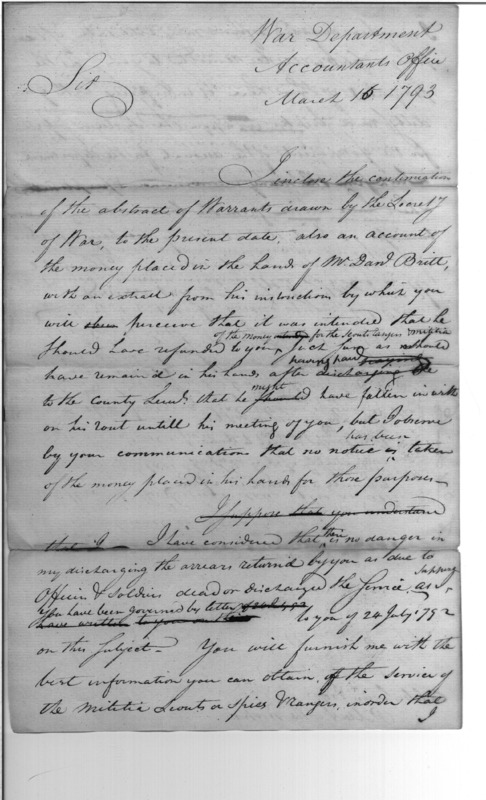 War Department
Accountants Office
March 16 1793
Sir
I inclose the continuation
of the abstract of Warrants drawn by the Secret.y
of War, to the present date, also an account of
the money placed in the hands of Mr. Danl Britt,
with an extract from his instructions by which you
will perceive that it was intended that he
of the money for the Scouts rangers & militia
should have refunded to you such sum as should
having paid
have remain'd in his hands after discharging the
to the County Lieuts. that he might have fallen in with
on his rout untill his meeting of you, but I observe
has been
by your communications that no notice is taken
of the money placed in his hands for those purposes—
I suppose that you understand
that I have considered that there is no danger in
my discharging the arrears return'd by you as due to
Officers & Soldiers dead or discharged the Service, as
Suppose
you have been governed by letter
have written to you on to you of 24 July 1792
on this subject— You will furnish me with the
best information you can obtain, of the service of
the Militia Scouts or Spies & rangers, in order that